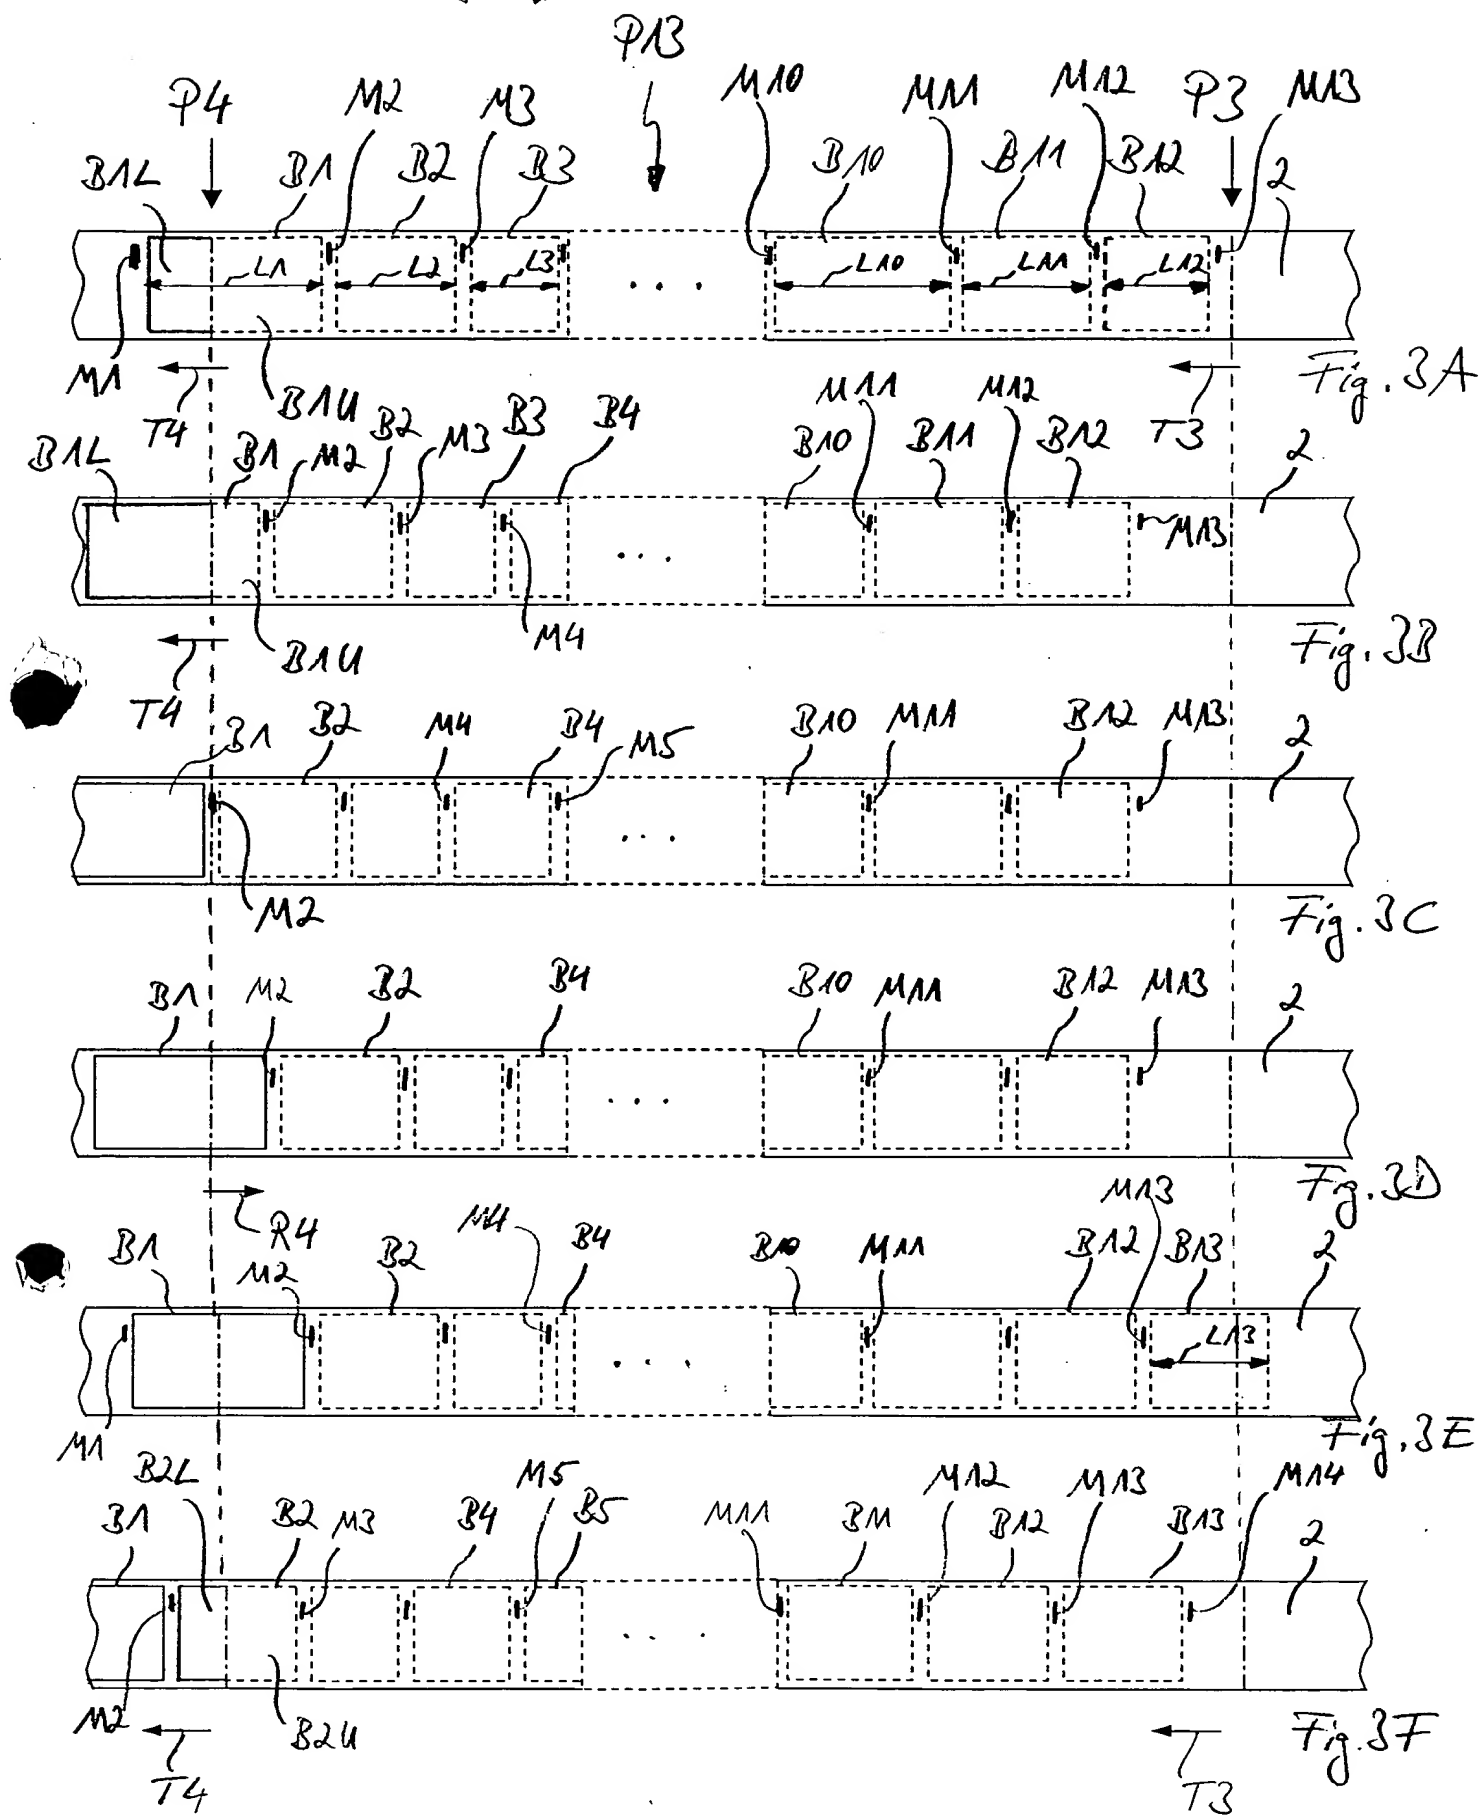 P13
P4 M2 M3 M10 M11 M12 P3 M13
B1L B1 B2 B3 B10 B11 B12 2
L1 L2 L3 . . . L10 L11 L12
M1 T4 B1U T3 Fig. 3A
B1L B1 M2 B2 M3 B3 B4 B10 M11 B11 M12 B12 2
. . . M13
T4 B1U M4 Fig. 3B
B1 B2 M4 B4 M5 B10 M11 B12 M13 2
. . .
M2 Fig. 3C
B1 M2 B2 B4 B10 M11 B12 M13 2
. . .
R4 Fig. 3D
B1 M2 B2 M4 B4 B10 M11 B12 M13 B13 2
. . . L13
M1 Fig. 3E
B1 B2L B2 M3 B4 M5 B5 M11 B11 M12 B12 M13 B13 M14 2
. . .
M2 T4 B2U T3 Fig. 3F